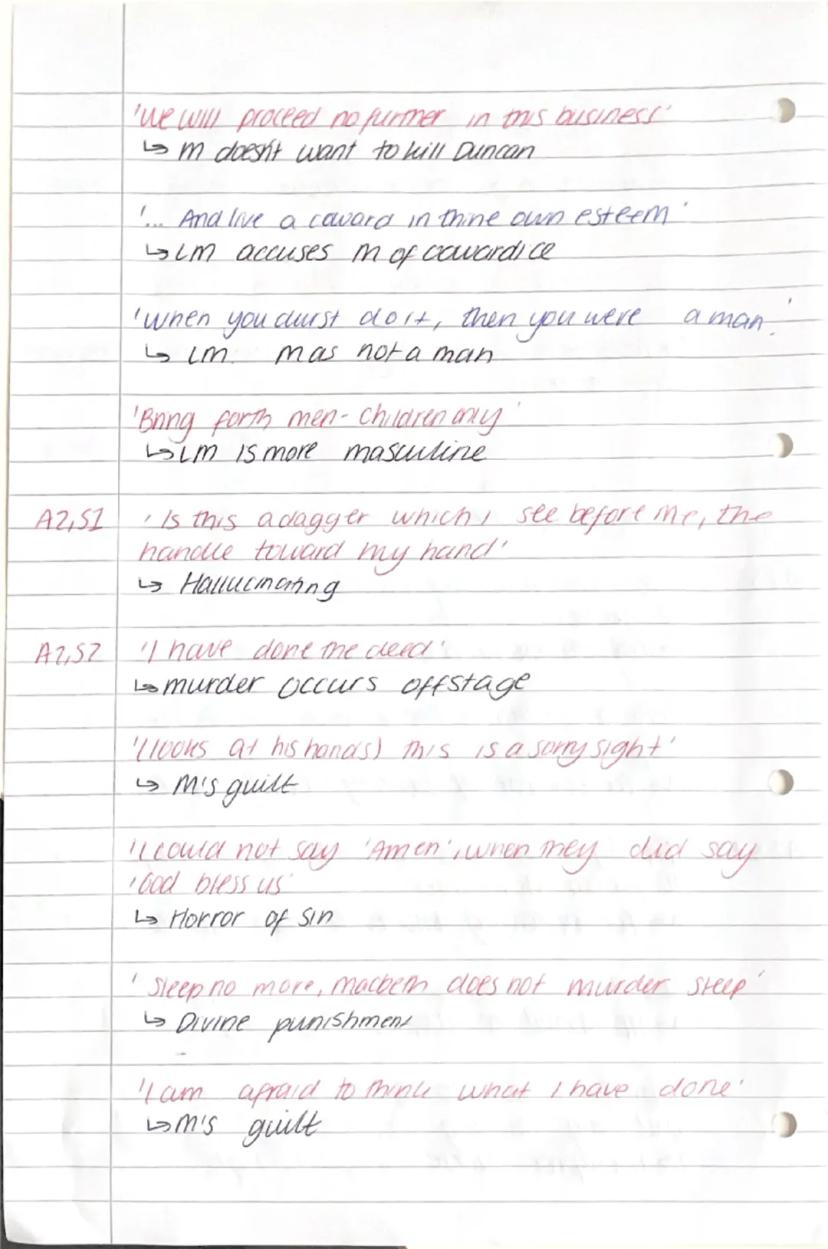 'We will proceed no further in this business'
↳ M doesn't want to kill Duncan
'... And live a coward in thine own esteem'
↳ LM accuses M of cowardice
'When you durst do it, then you were a man.'
↳ LM M as not a man
'Bring forth men-children only'
↳ LM is more masculine
A2,S1 'Is this a dagger which I see before me, the
handle toward my hand'
↳ Hallucinating
A2,S2 'I have done the deed'
↳ murder occurs offstage
'(looks at his hands) this is a sorry sight'
↳ M's guilt
'I could not say 'Amen', when they did say
'God bless us'
↳ Horror of sin
'Sleep no more, Macbeth does not murder sleep'
↳ Divine punishment
'I am afraid to think what I have done'
↳ M's guilt